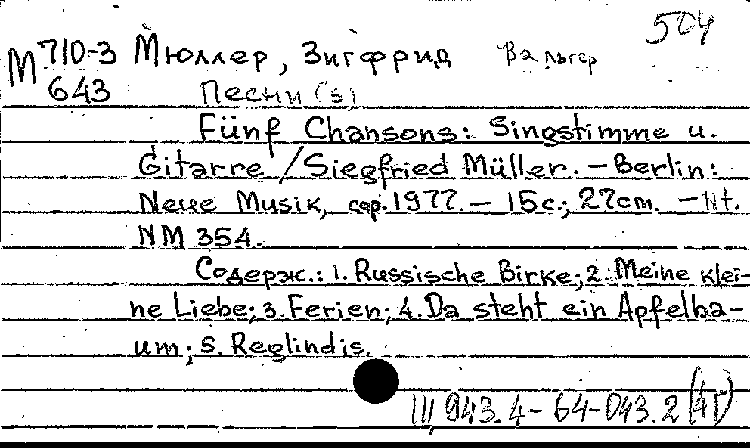 504
М 710-3 Мюллер, Зигфрид Вальтер
643 Песни (5)
Fünf Chansons: Singstimme u.
Gitarre / Siegfried Müller. — Berlin:
Neue Musik, cop. 1977. — 15 с.; 27 cm. — Nt.
NM 354.
Содерж.: 1. Russische Birke; 2. Meine klei-
ne Liebe; 3. Ferien; 4. Da steht ein Apfelba-
um; 5. Reglindis.
943.4-64-043.2